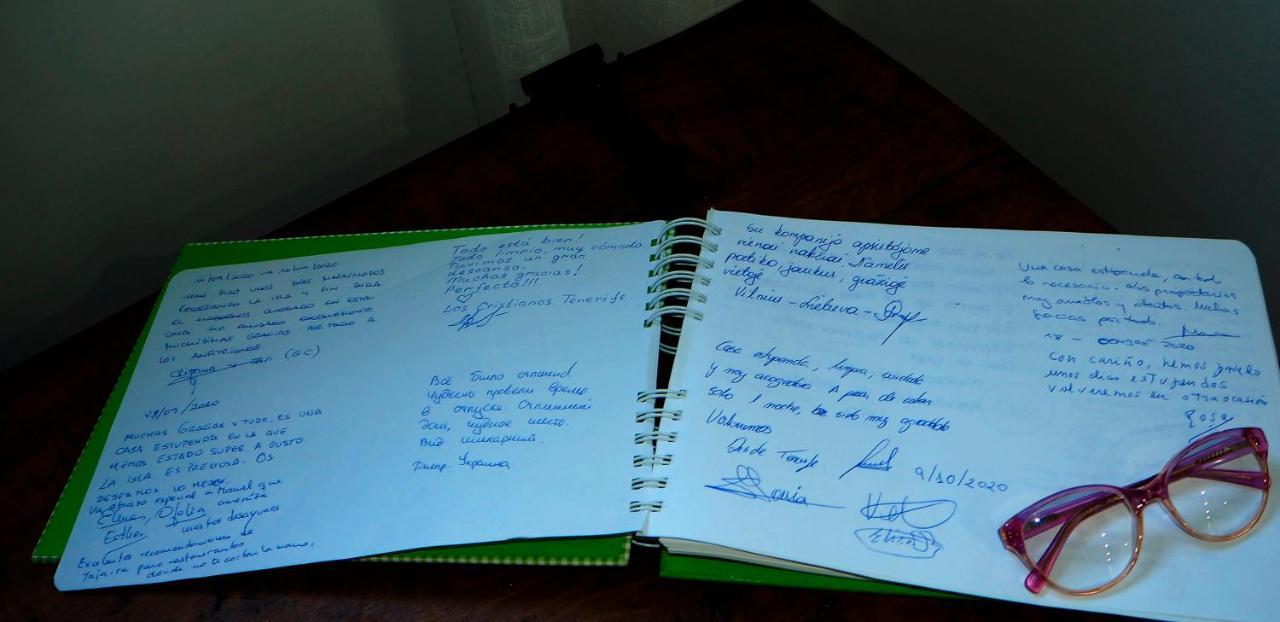 11/09/2020 → 14/09/2020
HAN SIDO UNOS DÍAS
RECORRIENDO LA ISLA Y SIN DUDA
EL HABERNOS ALOJADO EN ESTA
CASA HA AYUDADO
MUCHÍSIMAS GRACIAS POR TODO A
LOS ANFITRIONES.
(GC)
18/09/2020
MUCHAS GRACIAS X TODO, ES UNA
CASA ESTUPENDA EN LA QUE
HEMOS ESTADO SUPER A GUSTO.
LA ISLA ES PRECIOSA. OS
DESEAMOS LO MEJOR.
Un abrazo especial a Manuel que
Elena, Ofelia
Esther nuestros desayunos
Excelentes recomendaciones de
Yajaira para restaurantes
donde no te cortan la mano,
Todo está bien!
Todo limpio, muy cómodo
Tuvimos un gran
descanso.
Muchas gracias!
Perfecto!!!
♡
Los Cristianos Tenerife
Всё было отлично!
Чудесно провели время
в отпуске. Отличный
дом, чудное место.
Вид шикарный.
Днепр. Украина
Su kompanija apsistojome
vienai nakčiai. Namelis
patiko, jaukus, graži
vieta
Vilnius - Lietuva -
Casa estupenda, limpia, cuidada
y muy acogedora. A pesar de estar
solo 1 noche, ha sido muy agradable
Volveremos
Desde Tenerife
9/10/2020
Sonia
Una casa estupenda, con todo
lo necesario. Los propietarios
muy amables y atentos. Muchas
gracias por todo.
18 - OCTUBRE 2020
Con cariño, hemos pasado
unos dias estupendos
volveremos en otra ocasión
Rosa